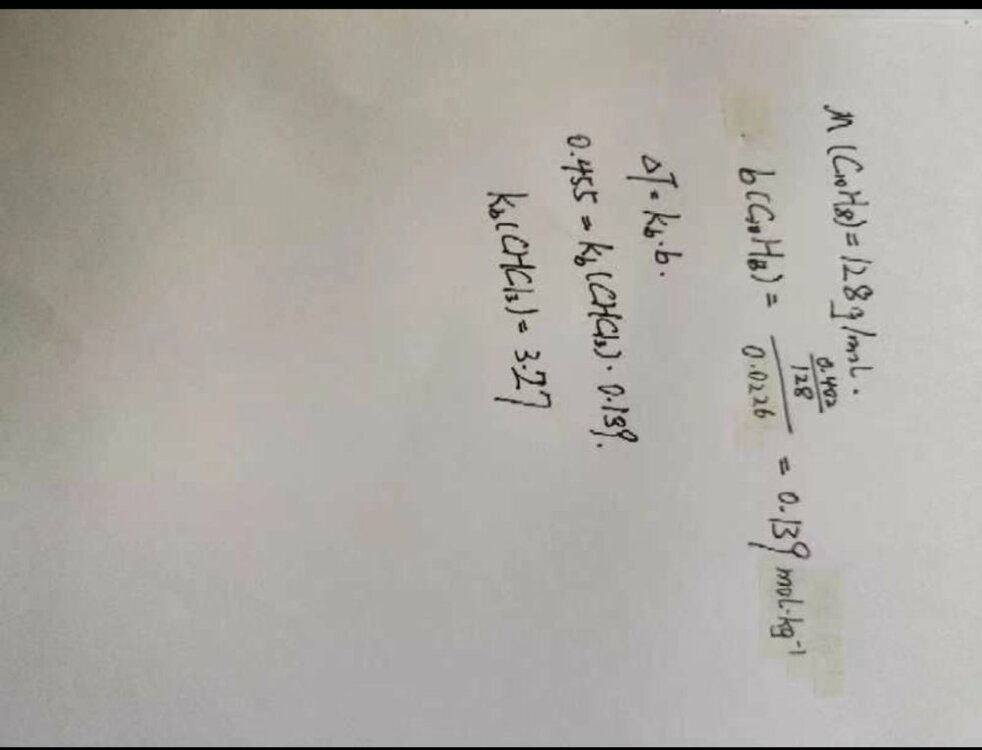 M(C₁₀H₈)=128g/mol.
b(C₁₀H₈) = (0.402/128)/0.0226 = 0.139 mol·kg⁻¹
ΔT = k_b·b.
0.455 = k_b(CHCl₃)·0.139.
k_b(CHCl₃) = 3.27